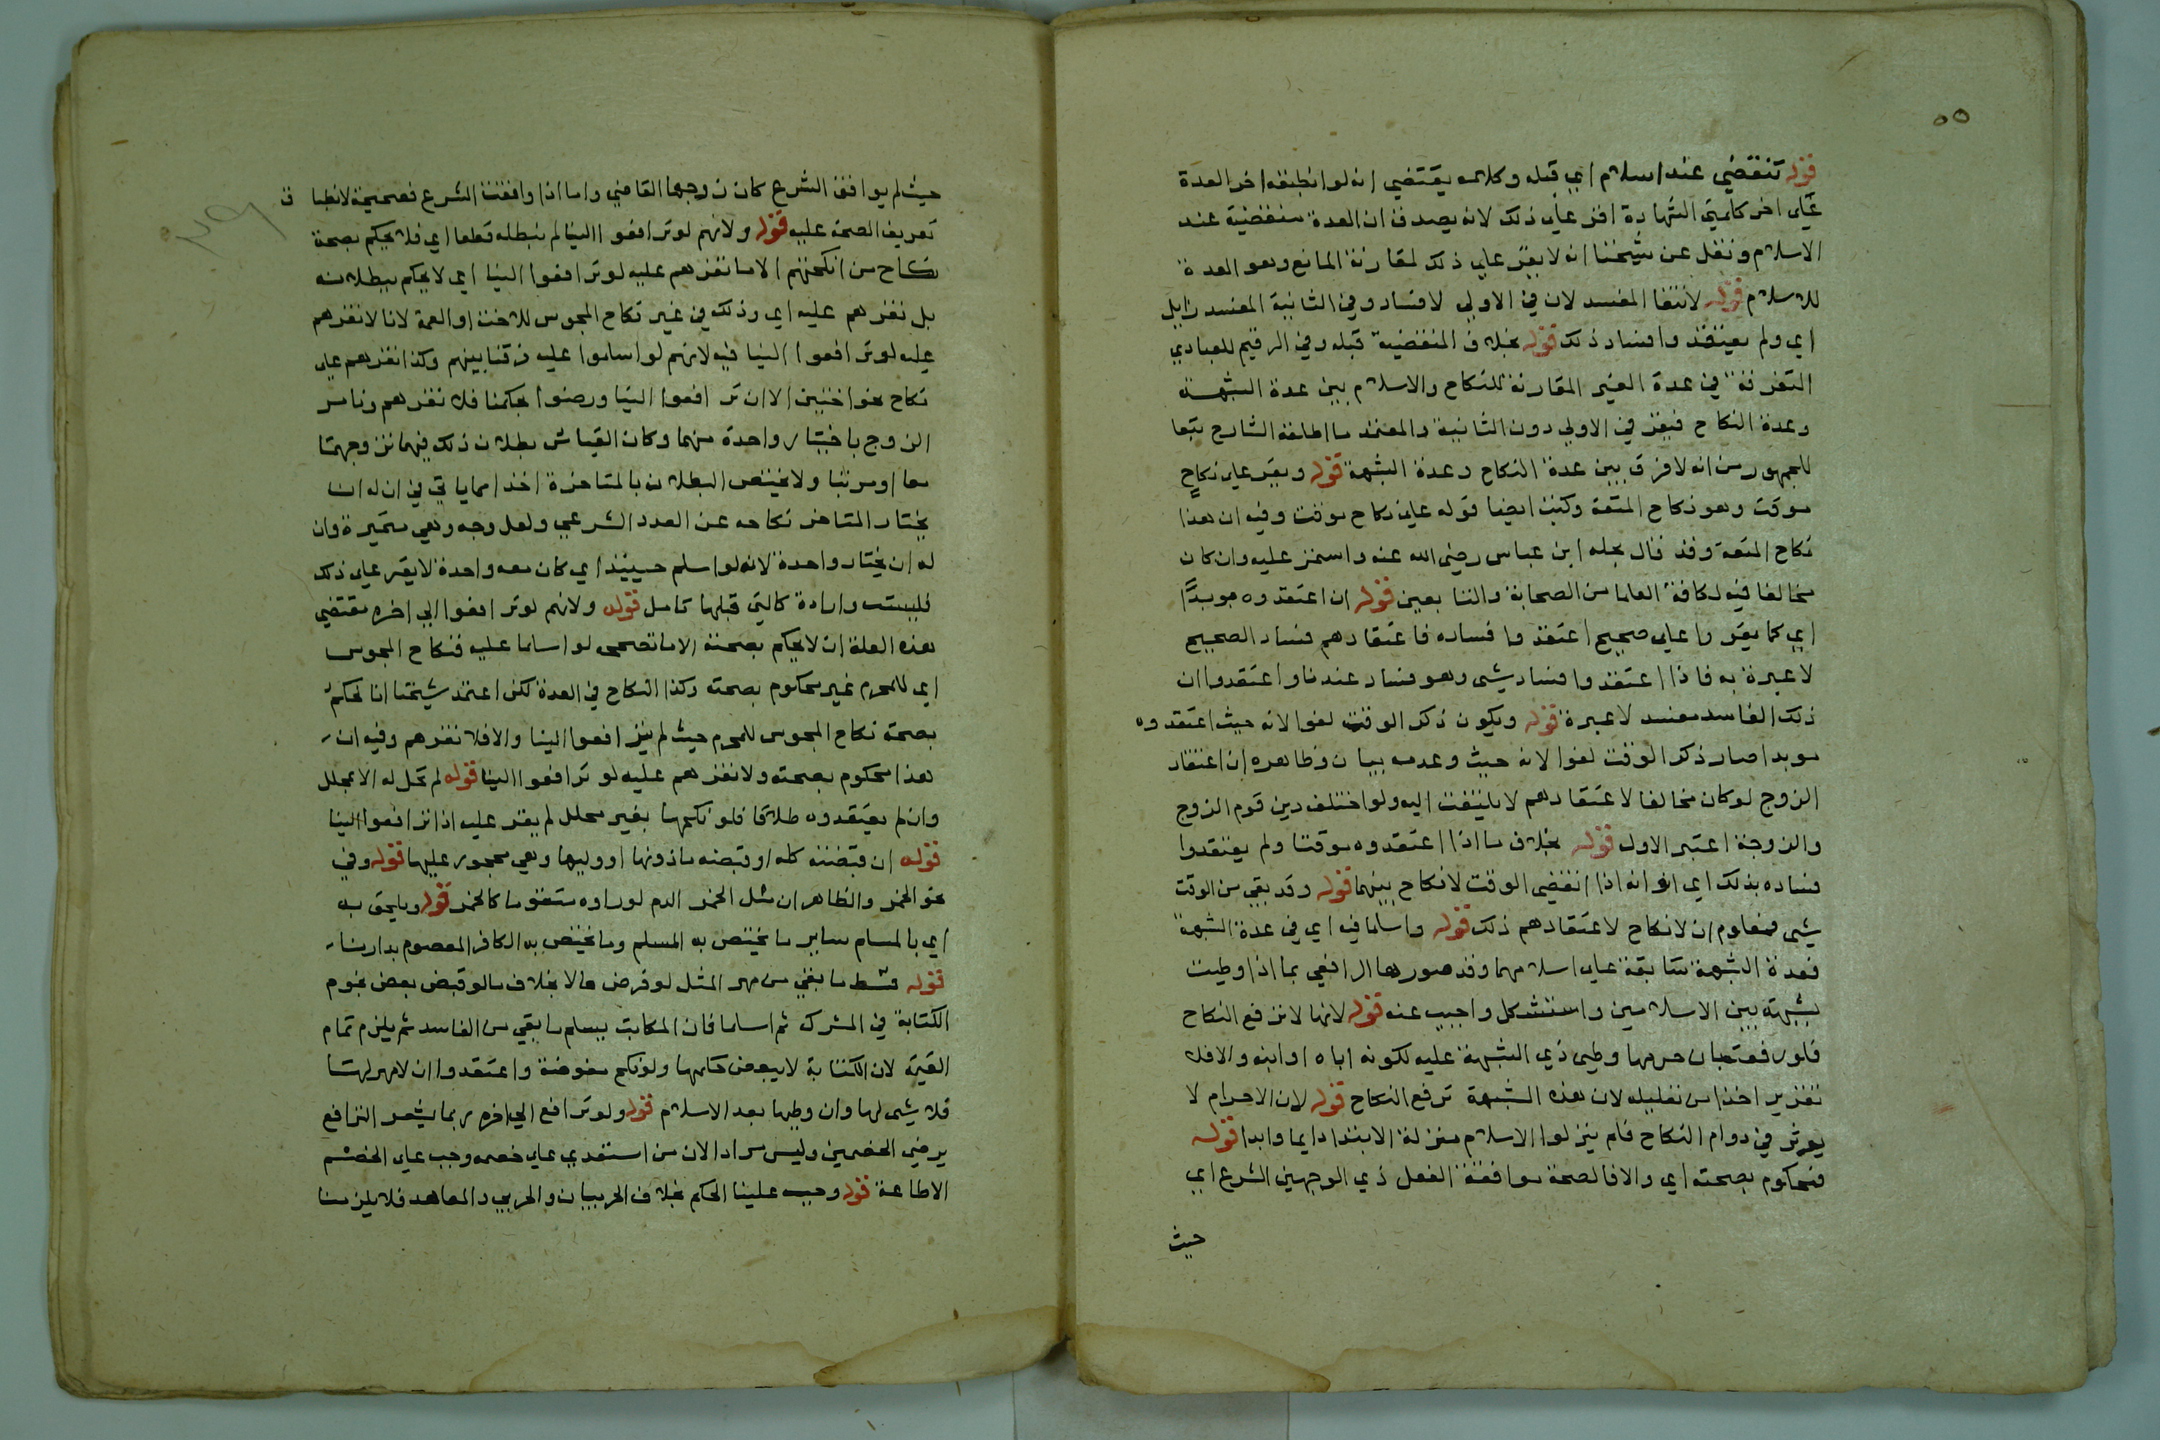 ٥٥
قوله تنقضي عند اسلام اي قبله وكلامه يقتضي انه لو انطبق اخر العدة
علي اخر كلمتي الشهادة اقر علي ذلك لانه يصدق ان العدة منقضية عند
الاسلام ونقل عن شيخنا انه لا يقر علي ذلك لمقارنة المانع وهو العدة
للاسلام قوله لانتفا المفسد لان في الاولي لا فساد وفي الثانية المفسد زايل
اي ولم يعتقدوا فساد ذلك قوله بخلاف المنقضية قبله وفي الرقيم للعبادي
التفرقة في عدة الغير المقارنة للنكاح والاسلام بين عدة الشبهة
وعدة النكاح فيقر في الاولي دون الثانية والمعتمد ما اطلقه الشارح تبعا
للجمهور من انه لا فرق بين عدة النكاح وعدة الشبهة قوله ويقر علي نكاح
موقت وهو نكاح المتعة وكتب ايضا قوله علي نكاح موقت وفيه ان هذا
نكاح المتعة وقد قال بحله ابن عباس رضي الله عنه واستمر عليه وان كان
مخالفا فيه لكافة العلما من الصحابة والتابعين قوله ان اعتقدوه موبدا
اي كما يقروا علي صحيح اعتقدوا فساده فاعتقادهم فساد الصحيح
لا عبرة به فاذا اعتقدوا فساد شي وهو فساد عندنا واعتقدوا ان
ذلك الفاسد مفسد لا عبرة قوله ويكون ذكر الوقت لغوا لانه حيث اعتقدوه
موبدا صار ذكر الوقت لغوا لانه حيث وعدمه بيان وظاهره ان اعتقاد
الزوج لو كان مخالفا لاعتقادهم لا يلتفت اليه ولو اختلف دين قوم الزوج
والزوجة اعتبر الاول قوله بخلاف ما اذا اعتقدوه موقتا ولم يعتقدوا
فساده بذلك اي انه اذا انقضي الوقت لا نكاح بينهما قوله وقد بقي من الوقت
شي فمعلوم ان لا نكاح لاعتقادهم ذلك قوله واسلما فيه اي في عدة الشبهة
فعدة الشبهة سابقة علي اسلامهما وقد صورها الرافعي بما اذا وطيت
بشبهة بين الاسلامين واستشكل واجيب عنه قوله لانها لا ترفع النكاح
حرمها وطي ذي الشبهة عليه لكونه اباه او ابنه والا فلا
تقرير اخذا من تعليله لان هذه الشبهة ترفع النكاح قوله لان الاحرام لا
يوثر في دوام النكاح فلم ينزلوا الاسلام منزلة الابتدا دايما وابدا قوله
فمحكوم بصحته اي والا فالصحة موافقة الفعل ذي الوجهين الشرع اي
حيث
حيث لم يوافق الشرع كان زوجها القاضي واما اذا وافقت الشرع فصحيحة لانطباق
تعريف الصحة عليه قوله ولانهم لو ترافعوا الينا لم نبطله قطعا اي فلا يحكم بصحة
نكاح من انكحتهم الا ما نقرهم عليه لو ترافعوا الينا اي لا يحكم ببطلانه
بل نقرهم عليه اي وذلك في غير نكاح المجوس للاخت او العمة لانا لا نقرهم
عليه لو ترافعوا الينا فيه لانهم لو اسلموا عليه فرقنا بينهم وكذا نقرهم علي
نكاح نحو اختين الا ان ترافعوا الينا ورضوا بحكمنا فلا نقرهم ونامر
الزوج باختيار واحدة منهما وكان القياس بطلان ذلك فيهما تزوجهما
معا او مرتبا ولا يختص البطلان بالمتاخرة اخذا مما ياتي في ان له ان
يختار المتاخر نكاحه عن العدد الشرعي ولعل وجه وهي متميزة وان
له ان يختار واحدة لانه لو اسلم حينيذ اي كان معه واحدة لا يقر علي ذلك
فليست واردة كالتي قبلها تامل قوله ولانهم لو ترافعوا الي اخره مقتضي
هذه العلة ان لا يحكم بصحته الا ما تصحح لو اسلما عليه فنكاح المجوس
اي للمحرم غير محكوم بصحته وكذا النكاح في العدة لكن اعتمد شيخنا انا نحكم
بصحة نكاح المجوس للمحرم حيث لم يترافعوا الينا والا فلا نقرهم وفيه ان
هذا محكوم بصحته ولا نقرهم عليه لو ترافعوا الينا قوله لم تحل له الا بمحلل
وان لم يعتقدوه طلاقا فلو نكحها بغير محلل لم يقر عليه اذا ترافعوا الينا
قوله ان قبضته كله او قبضه ماذونها او وليها وهي محجور عليها قوله وفي
نحو الخمر والظاهر ان مثل الخمر الدم لو راوه متقوما كالخمر قوله ويلحق به
اي بالمسلم ساير ما يختص به المسلم وما يختص به الكافر المعصوم بدارنا
قوله قسط ما بقي من مهر المثل لو فرض حالا بخلاف ما لو قبض بعض نجوم
الكتابة في المشرك ثم اسلما فان المكاتب يسلم ما بقي من الفاسد ثم يلزم تمام
القيمة لان الكتابة لا يبعض حكمها ولو نكح مفوضة واعتقدوا ان لا مهر لها
فلا شي لها وان وطيها بعد الاسلام قوله ولو ترافع الي اخره ربما يشعر الترافع
برضي الخصمين وليس مرادا لان من استعدي علي خصمه وجب علي الخصم
الاطاعة قوله وجب علينا الحكم بخلاف الحربيان والحربي والمعاهد فلا يلزمنا